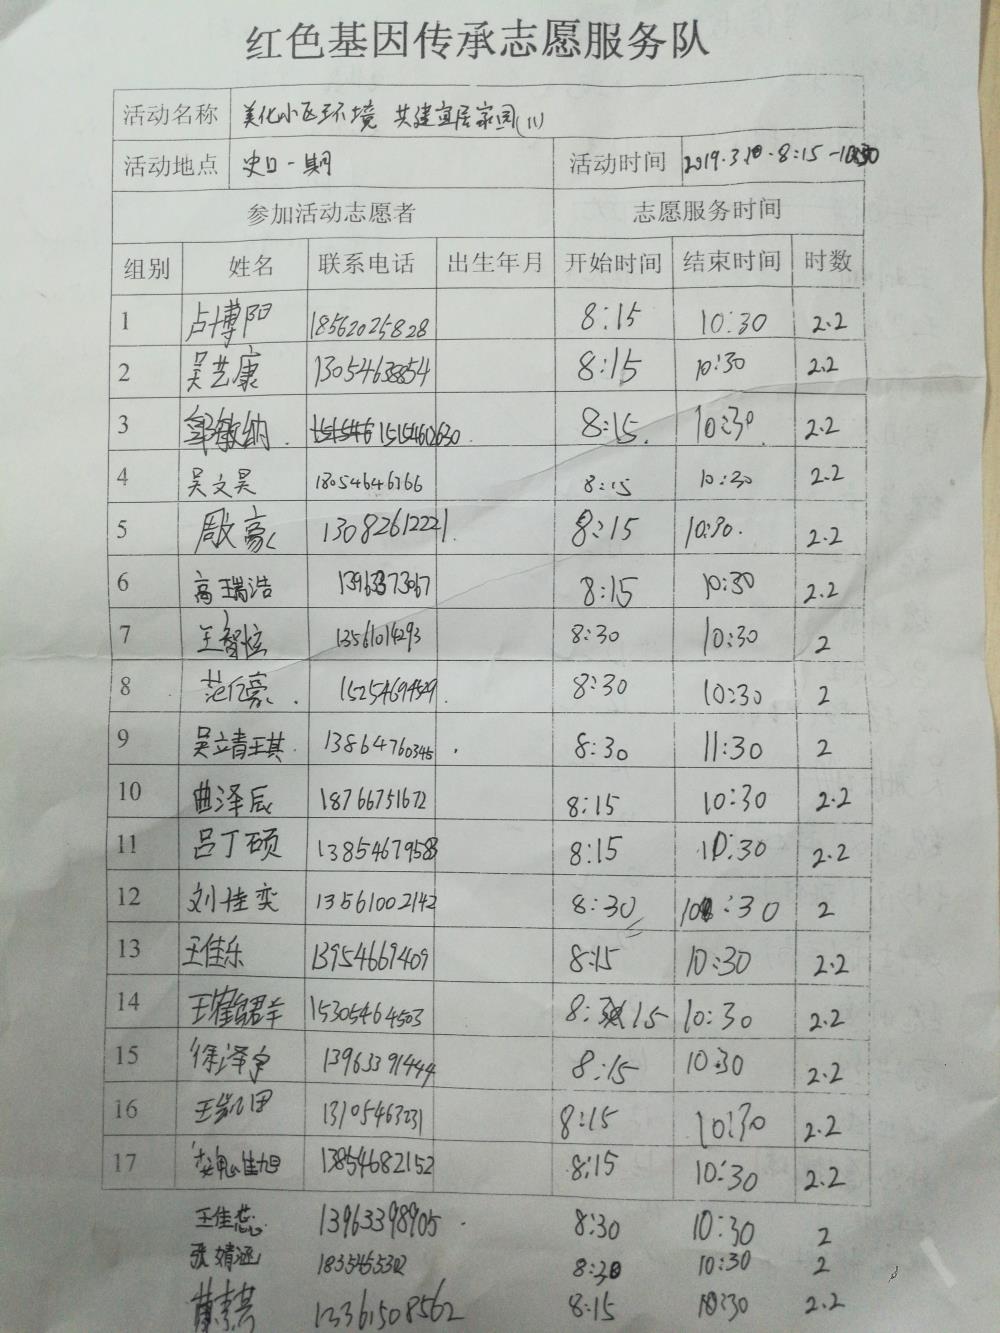 红色基因传承志愿服务队
活动名称 美化小区环境 共建宜居家园(11)
活动地点 史口一期 活动时间 2019.3.10.8:15-10:30
参加活动志愿者 志愿服务时间
组别 姓名 联系电话 出生年月 开始时间 结束时间 时数
1 卢博阳 18562025828 8:15 10:30 2.2
2 吴艺康 13054638854 8:15 10:30 2.2
3 邹敏纳 15154602630 8:15 10:30 2.2
4 吴文昊 18054646766 8:15 10:30 2.2
5 周文豪 13082612221 8:15 10:30 2.2
6 高瑞浩 13963373067 8:15 10:30 2.2
7 王智恒 13561014293 8:30 10:30 2
8 范亿豪 15254694529 8:30 10:30 2
9 吴靖琪 13864760345 8:30 11:30 2
10 曲泽辰 18766751672 8:15 10:30 2.2
11 吕丁硕 13854679583 8:15 10:30 2.2
12 刘佳奕 13561002142 8:30 10:30 2
13 王佳乐 13954661409 8:15 10:30 2.2
14 15305464503 8:15 10:30 2.2
15 徐泽宇 13963391444 8:15 10:30 2.2
16 王凯田 13105463231 8:15 10:30 2.2
17 13854682152 8:15 10:30 2.2
王佳蕊 13963398905 8:30 10:30 2
张婧涵 8:30 10:30 2
13361508562 8:15 10:30 2.2